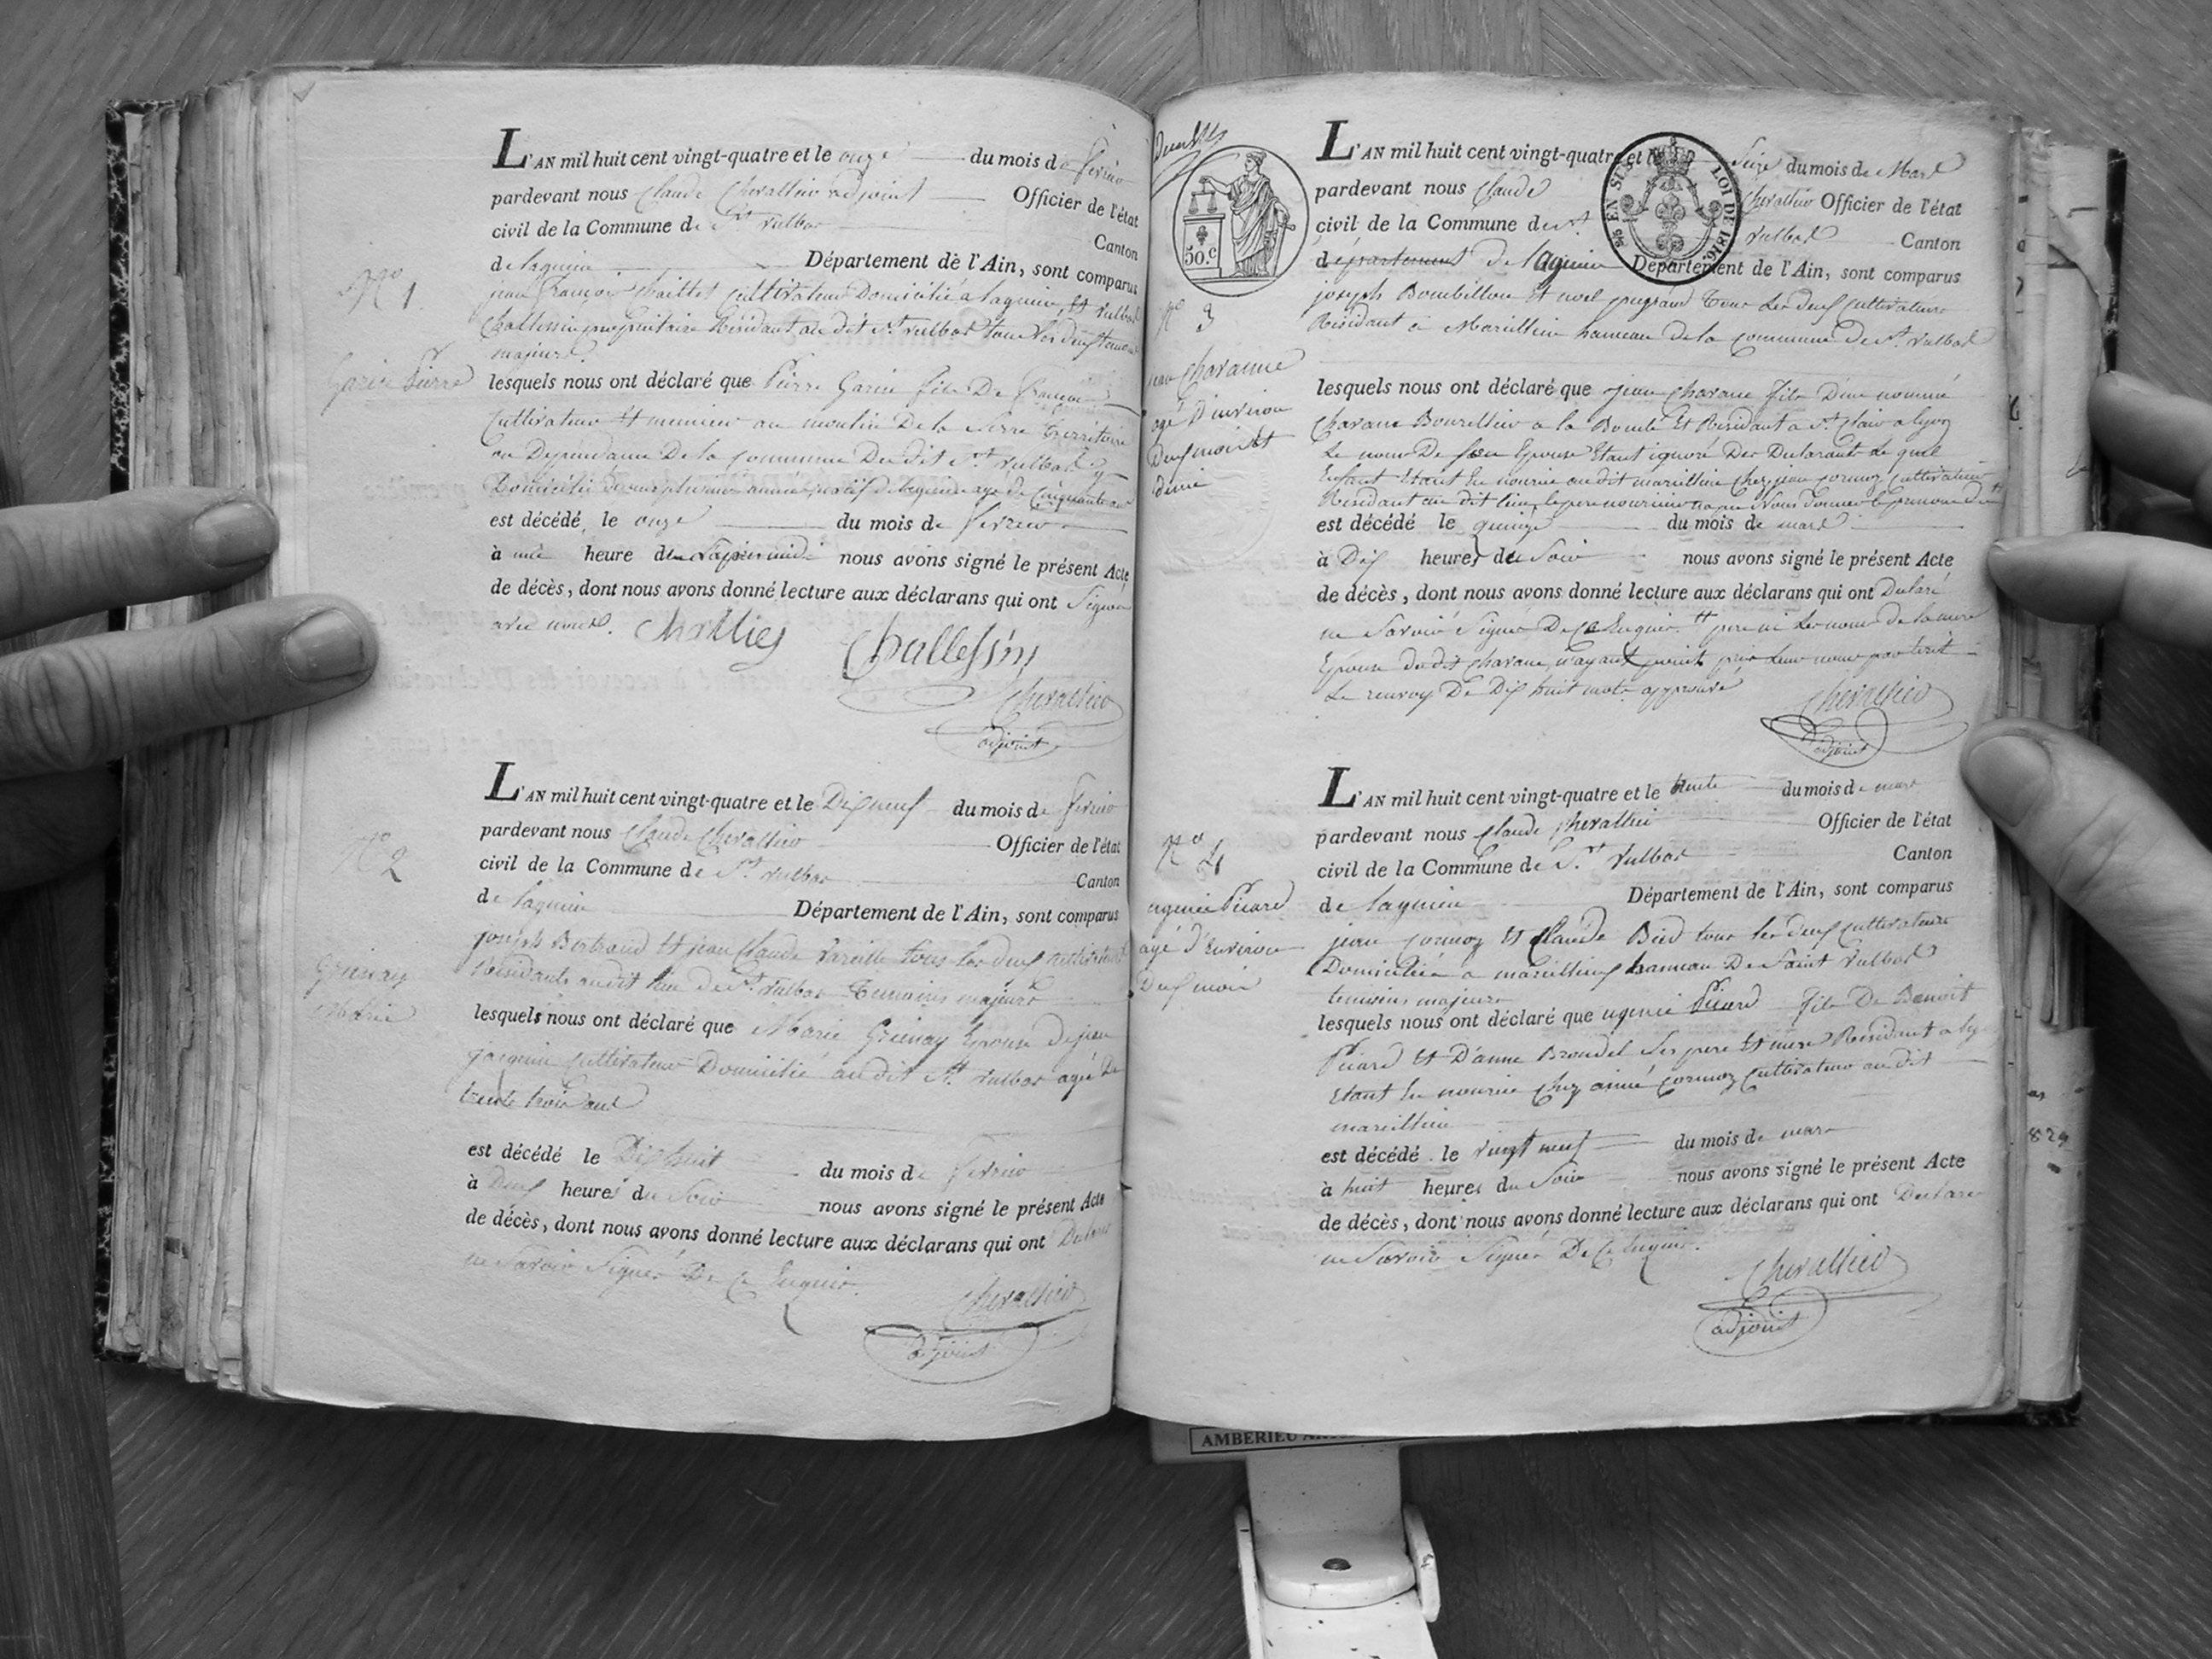 L'AN mil huit cent vingt-quatre et le onze du mois de fevrier
pardevant nous Claude Chevallier adjoint Officier de l'état
civil de la Commune de St. Vulbas
Canton
de lagnieu Département de l'Ain, sont comparus
N° 1
jean françois Cultivateur Domicilié a lagnieu, Et vulbas
Challessin propriétaire Résidant au dit St. vulbas tous les deux temoins
majeurs.
Garin Pierre
lesquels nous ont déclaré que Pierre Garin fils De françois
Cultivateur Et munier au moulin De la Serre territoire
ou Dépendance De la Commune Du dit St. Vulbas y
Domicilié depuis plusieurs année natif de lagnieu agé de Cinquante ans
est décédé le onze du mois de fevrier
à une heure de Lapresmidi nous avons signé le présent Acte
de décès, dont nous avons donné lecture aux déclarans qui ont Signé
avec nous. Challessin
Chevallier
adjoint
L'AN mil huit cent vingt-quatre et le Dixneuf du mois de fevrier
pardevant nous Claude Chevallier Officier de l'état
N° 2
civil de la Commune de St. vulbas
Canton
de lagnieu Département de l'Ain, sont comparus
joseph Bertrand Et jean Claude tous les deux Cultivateurs
Résidants audit lieu de St. vulbas Temoins majeurs
Marie
lesquels nous ont déclaré que Marie Epouse De jean
jacquin Cultivateur Domicilié au dit St. vulbas agée De
trente trois ans
est décédé le Dixhuit du mois de fevrier
à Deux heures du Soir nous avons signé le présent Acte
de décès, dont nous avons donné lecture aux déclarans qui ont Declaré
ne Savoir Signer De Ce Enquis.
Chevallier
adjoint
50.c
5/6 EN SUS LOI DE 1816.
L'AN mil huit cent vingt-quatre et le Seize du mois de Mars
pardevant nous Claude Chevallier Officier de l'état
civil de la Commune de St. Vulbas Canton
département de lagnieu Département de l'Ain, sont comparus
N° 3
joseph Bombillon Et noel tous les deux Cultivateurs
Résidant a Marcillieu hameau de la Commune De St. vulbas
jean Chavanne
agé d'environ
Deux mois Et
demie
lesquels nous ont déclaré que jean Chavane fils D'un nommé
Chavane Bourellier a la Et Résidant a St. Clair a lyon
Le nom De Son Epouse Etant ignoré Des Declarants Le quel
Enfant Etant En nourice audit marcillieu Chez jean Cormoz Cultivateur
Résidant au dit lieu, le pere nouricier na pu Nous Donner le prenom du tt
est décédé le quinze du mois de mars
à Dix heures du Soir nous avons signé le présent Acte
de décès, dont nous avons donné lecture aux déclarans qui ont Declaré
ne Savoir Signer De Ce Enquis. tt pere ni Les noms de la mere
Epouse du dit Chavane, n'ayant point pris Leur noms par Ecrit
Le renvoy De Dix huit mots approuvé
Chevallier
adjoint
L'AN mil huit cent vingt-quatre et le trente du mois de mars
pardevant nous Claude Chevallier Officier de l'état
N° 4
civil de la Commune de St. Vulbas Canton
de lagnieu Département de l'Ain, sont comparus
ugenie Picard
agé d'Environ
Deux mois
jean Cormoz Et Claude Bied tous les deux Cultivateurs
Domiciliés a marcillieux hameau De Saint Vulbas
temoins majeurs
lesquels nous ont déclaré que ugenie Picard fils De Benoit
Picard Et D'anne Brondel Ses pere Et mere Résidant a
Etant En nourice Chez aimé Cormoz Cultivateur au dit
marcillieu
est décédé le vingt neuf du mois de mars
à huit heures du Soir nous avons signé le présent Acte
de décès, dont nous avons donné lecture aux déclarans qui ont Declaré
ne Savoir Signer De Ce Enquis.
Chevallier
adjoint
AMBERIEU